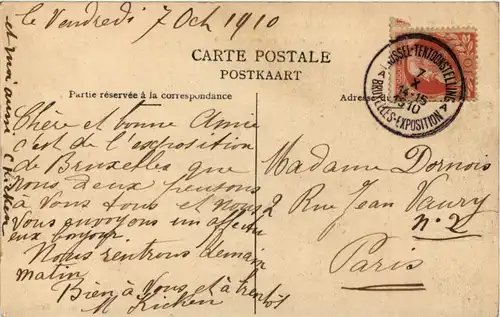 le Vendredi 7 Oct 1910
CARTE POSTALE
POSTKAART
Partie réservée à la correspondance
Adresse du
BRUSSEL-TENTOONSTELLING
7 X
14-15
1910
BRUXELLES-EXPOSITION
Chère et bonne Amie
c'est de l'exposition
de Bruxelles que
nous deux pensons
à vous tous et nous
vous envoyons un affectu
eux bonjour
Nous rentrons demain
matin
Bien à vous et à bientot
M Kicken
et moi aussi
Madame Dornois
2 Rue Jean Vaury
n° 2
Paris